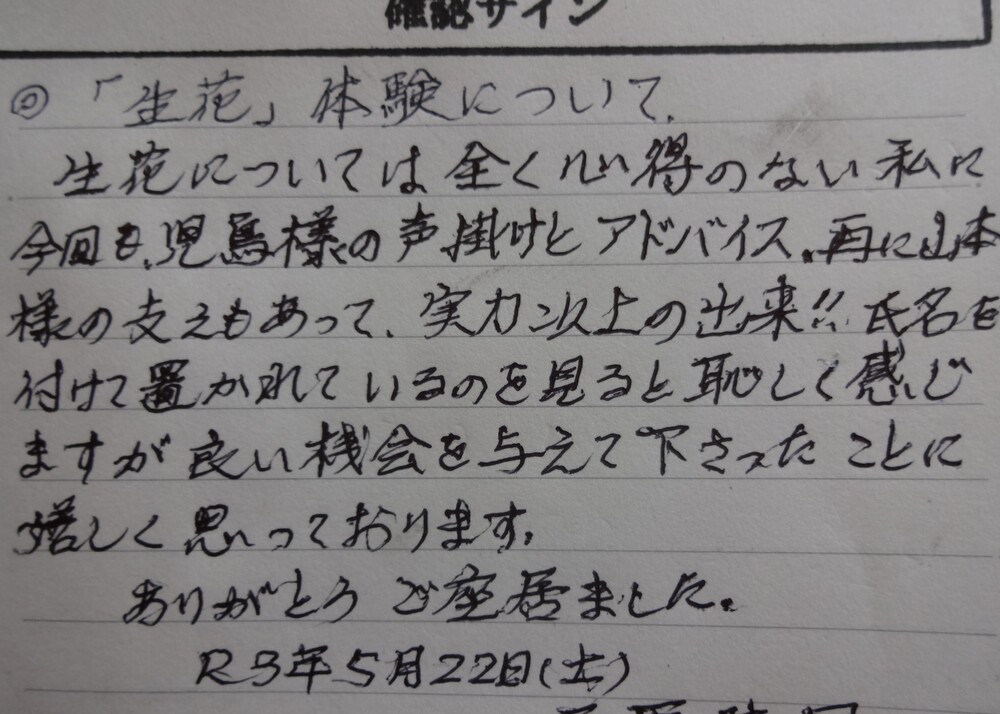 確認サイン
◎「生花」体験について、
生花については全く心得のない私に
今回も、児島様の声掛けとアドバイス、再に山本
様の支えもあって、実力以上の出来!! 氏名を
付けて置かれているのを見ると恥しく感じ
ますが良い機会を与えて下さったことに
嬉しく思っております。
ありがとうご座居ました。
R3年5月22日(土)